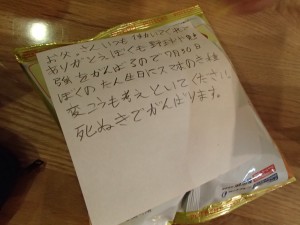 お父さんいつも
ありがとうぼくも野球と勉
強をがんばるので7月30日
ぼくのたん生日にスマホのきしゅ
変こうも考えといてください!
死ぬきでがんばります。